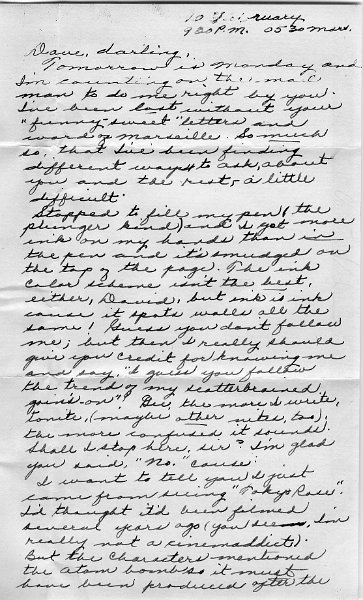 10 February
920 P.M. 0520 Mars.
Dave, darling,
Tomorrow is Monday and
I'm counting on the mail
man to do me right by you.
I've been lost without your
"funny-sweet" letters and
word of Marseille. So much
so, that I've been finding
different ways to ask about
you and the rest, a little
difficult.
Stopped to fill my pen (the
plunger kind) and I got more
ink on my hands than in
the pen and it's smudged on
the top of the page. The ink
color scheme isn't the best,
either, David, but ink is ink
cause it spots walls all the
same! Guess you don't follow
me; but then I really should
give you credit for knowing me
and say, "I guess you follow
the trend of my scatterbrained
goins-on"! Gee, the more I write,
tonite, (maybe other nites, too),
the more confused it sounds.
Shall I stop here, sir? I'm glad
you said, "No." 'Cause
I want to tell you I just
came from seeing "Tokyo Rose".
I'd thought it'd been filmed
several years ago (you see, I'm
really not a cinemaddict).
But the characters mentioned
the atom bomb so it must
have been produced after the